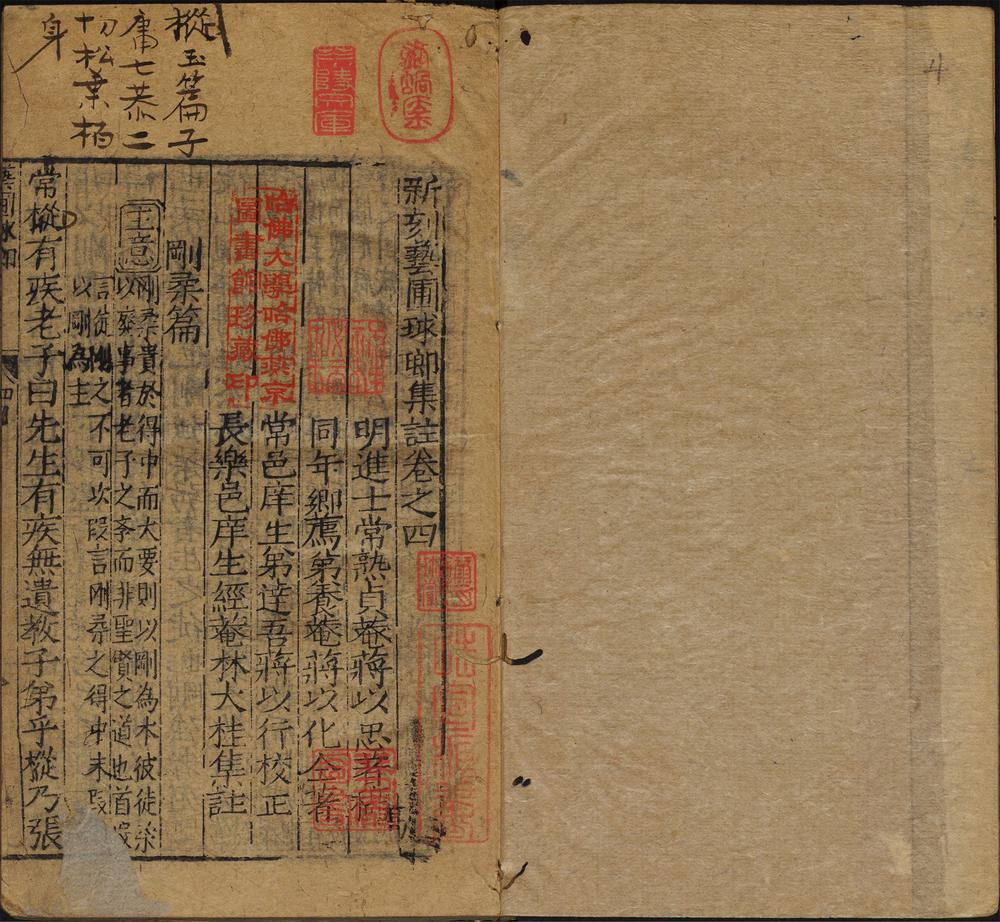 4
新刻藝圃球瑯集註卷之四
明進士常熟貞菴蔣以忠著
同午鄉薦第養菴蔣以化仝著
常邑庠生第達吾蔣以行校正
長樂邑庠生經菴林大桂集註
哈佛大學哈佛燕京
圖書館珍藏印
剛柔篇
主意
剛柔貴於得中而大要則以剛為本彼徒柔
以廢事者老子之李而非聖賢之道也首段
言徒剛之不可次段言剛柔之得中末段
以剛為主
常樅有疾老子曰先生有疾無遺教子第乎樅乃張
樅玉篇子
庸七恭二
切松葉柏
身